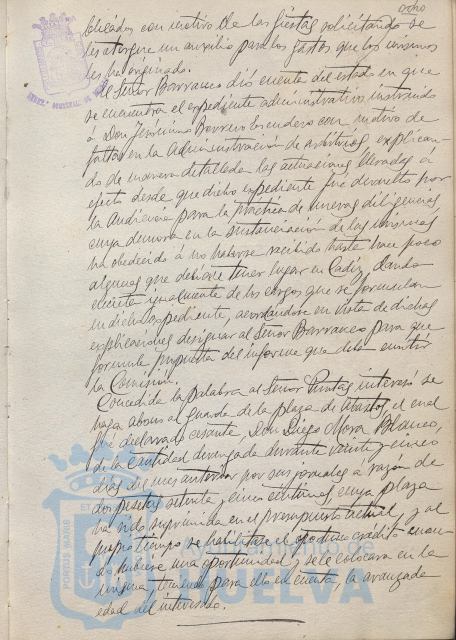 ocho
blicados con motivo de las fiestas solicitando se
les otorgue un auxilio para los gastos que los mismos
les ha originado.
El Señor Barranco dió cuenta del estado en que
se encuentra el expediente administrativo instruido
á Don Jerónimo Borrero Escudero con motivo de
faltas en la Administración de arbitrios, explican-
do de manera detallada las actuaciones llevadas a
efecto desde que dicho expediente fué devuelto por
la Audiencia para la práctica de nuevas diligencias
cuya demora en la sustanciación de las mismas
ha obedecido á no haberse recibido hasta hace poco
algunas que debían tener lugar en Cadiz, dando
cuenta igualmente de los cargos que se formulan
en dicho expediente, acordándose en vista de dichas
explicaciones designar al Señor Barranco para que
formule propuesta del informe que debe emitir
la Comisión.
Concedida la palabra al Señor interesó se
haga abono al guarda de la plaza de Abastos, el cual
fué declarado cesante, Don Diego Mora Blanco,
de la cantidad devengada durante veinte y cinco
dias del mes anterior por sus jornales a razón de
dos pesetas setenta y cinco céntimos, cuya plaza
ha sido suprimida en el presupuesto actual y al
propio tiempo se habilitase el oportuno crédito cuan-
do hubiere una oportunidad y se le colocara en la
misma, teniendo para ello en cuenta la avanzada
edad del interesado.
PORTUS MARIS ET
Ayuntamiento de
HUELVA